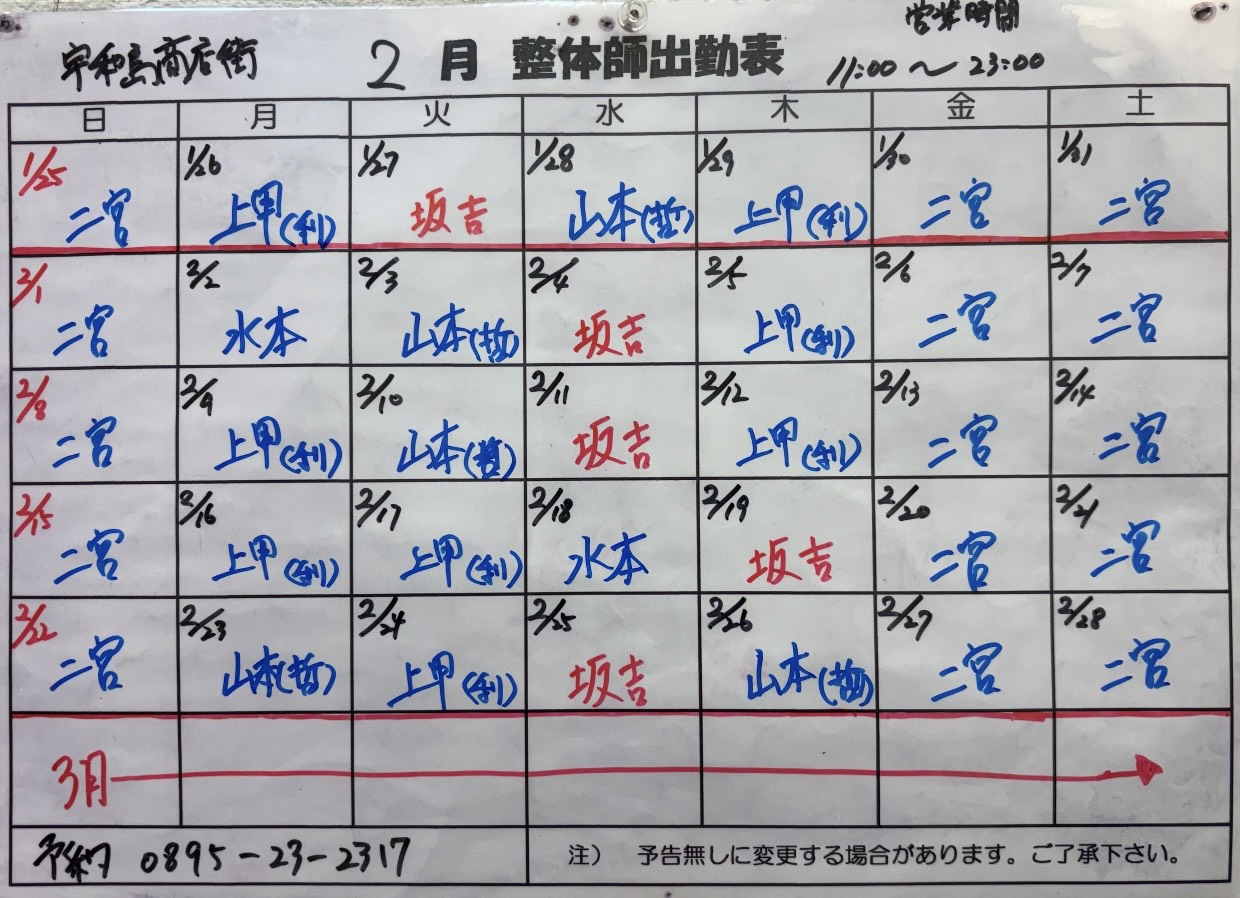 営業時間
宇和島商店街 2月 整体師出勤表 11:00～23:00
日 月 火 水 木 金 土
1/25 1/26 1/27 1/28 1/29 1/30 1/31
二宮 上甲(利) 坂吉 山本(哲) 上甲(利) 二宮 二宮
2/1 2/2 2/3 2/4 2/5 2/6 2/7
二宮 水本 山本(哲) 坂吉 上甲(利) 二宮 二宮
2/8 2/9 2/10 2/11 2/12 2/13 2/14
二宮 上甲(利) 山本(哲) 坂吉 上甲(利) 二宮 二宮
2/15 2/16 2/17 2/18 2/19 2/20 2/21
二宮 上甲(利) 上甲(利) 水本 坂吉 二宮 二宮
2/22 2/23 2/24 2/25 2/26 2/27 2/28
二宮 山本(哲) 上甲(利) 坂吉 山本(哲) 二宮 二宮
3月
予約 0895-23-2317 注） 予告無しに変更する場合があります。ご了承下さい。